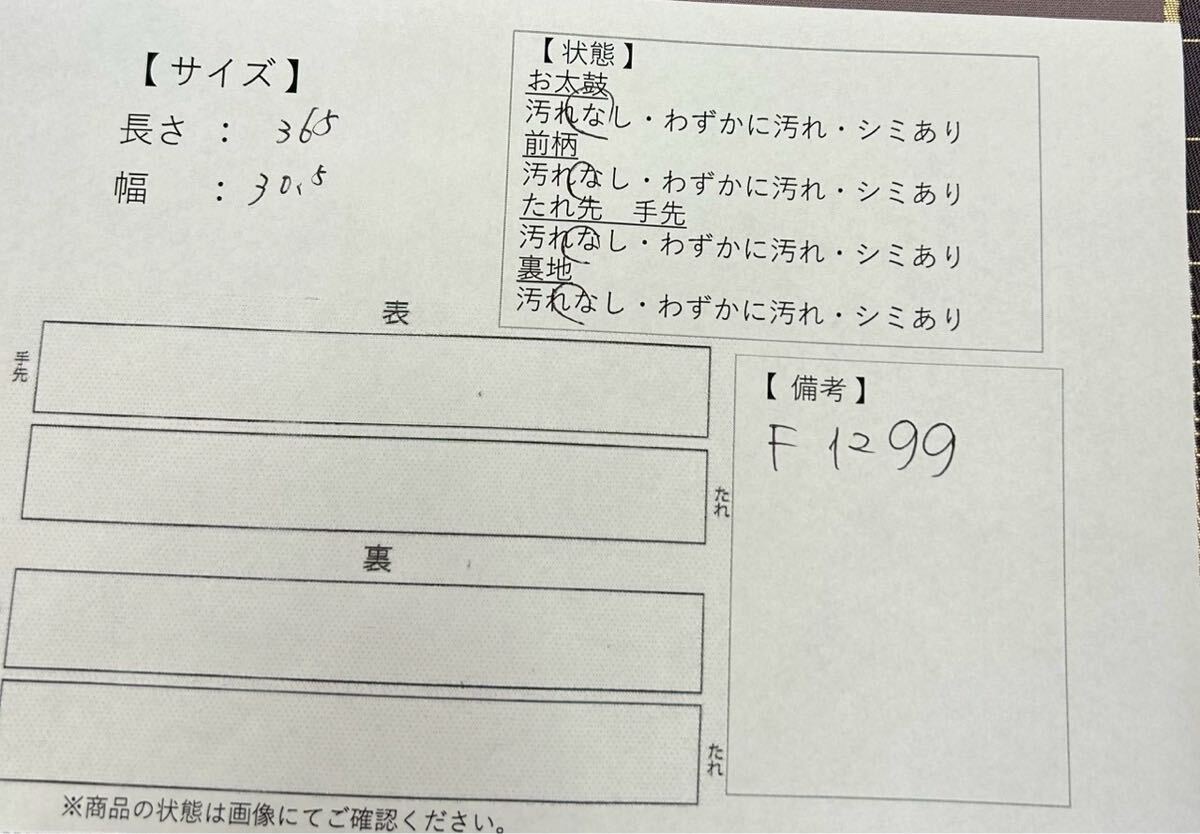 【 サイズ 】
長さ : 365
幅 : 30.5
【 状態 】
お太鼓
汚れなし・わずかに汚れ・シミあり
前柄
汚れなし・わずかに汚れ・シミあり
たれ先 手先
汚れなし・わずかに汚れ・シミあり
裏地
汚れなし・わずかに汚れ・シミあり
表
手先
たれ
裏
たれ
【 備考 】
F 1299
※商品の状態は画像にてご確認ください。